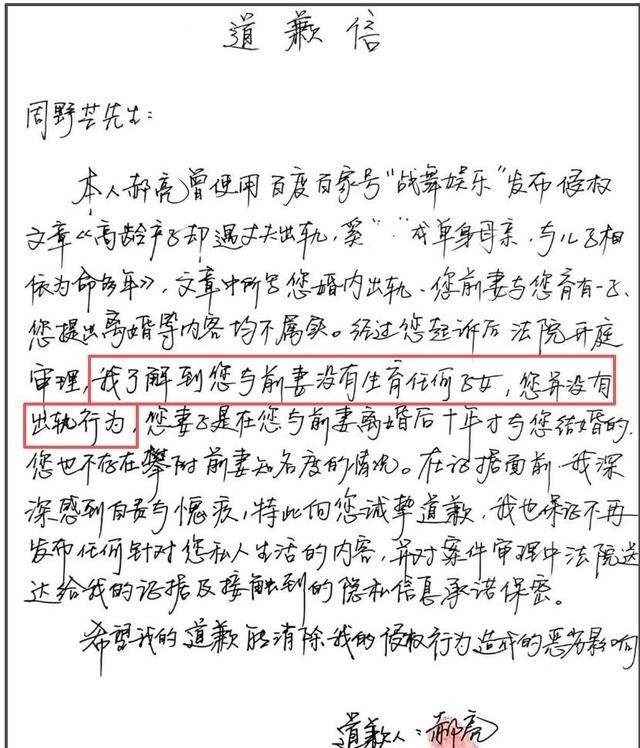 道歉信
周野芒先生:
本人郝亮曾使用百度百家号"战舞娱乐"发布侵权
文章《高龄产子却遇丈夫出轨,奚" "成单身母亲,与儿子相
依为命多年》,文章中所写您婚内出轨、您前妻与您育有一子、
您提出离婚等内容均不属实。经过您起诉后法院开庭
审理,我了解到您与前妻没有生育任何子女,您并没有
出轨行为,您妻子是在您与前妻离婚后十年才与您结婚的,
您也不存在攀附前妻知名度的情况。在证据面前,我深
深感到自责与愧疚,特此向您诚挚道歉,我也保证不再
发布任何针对您私人生活的内容,并对案件审理中法院送
达给我的证据及接触到的隐私信息承诺保密。
希望我的道歉能消除我的侵权行为造成的恶劣影响
道歉人:郝亮